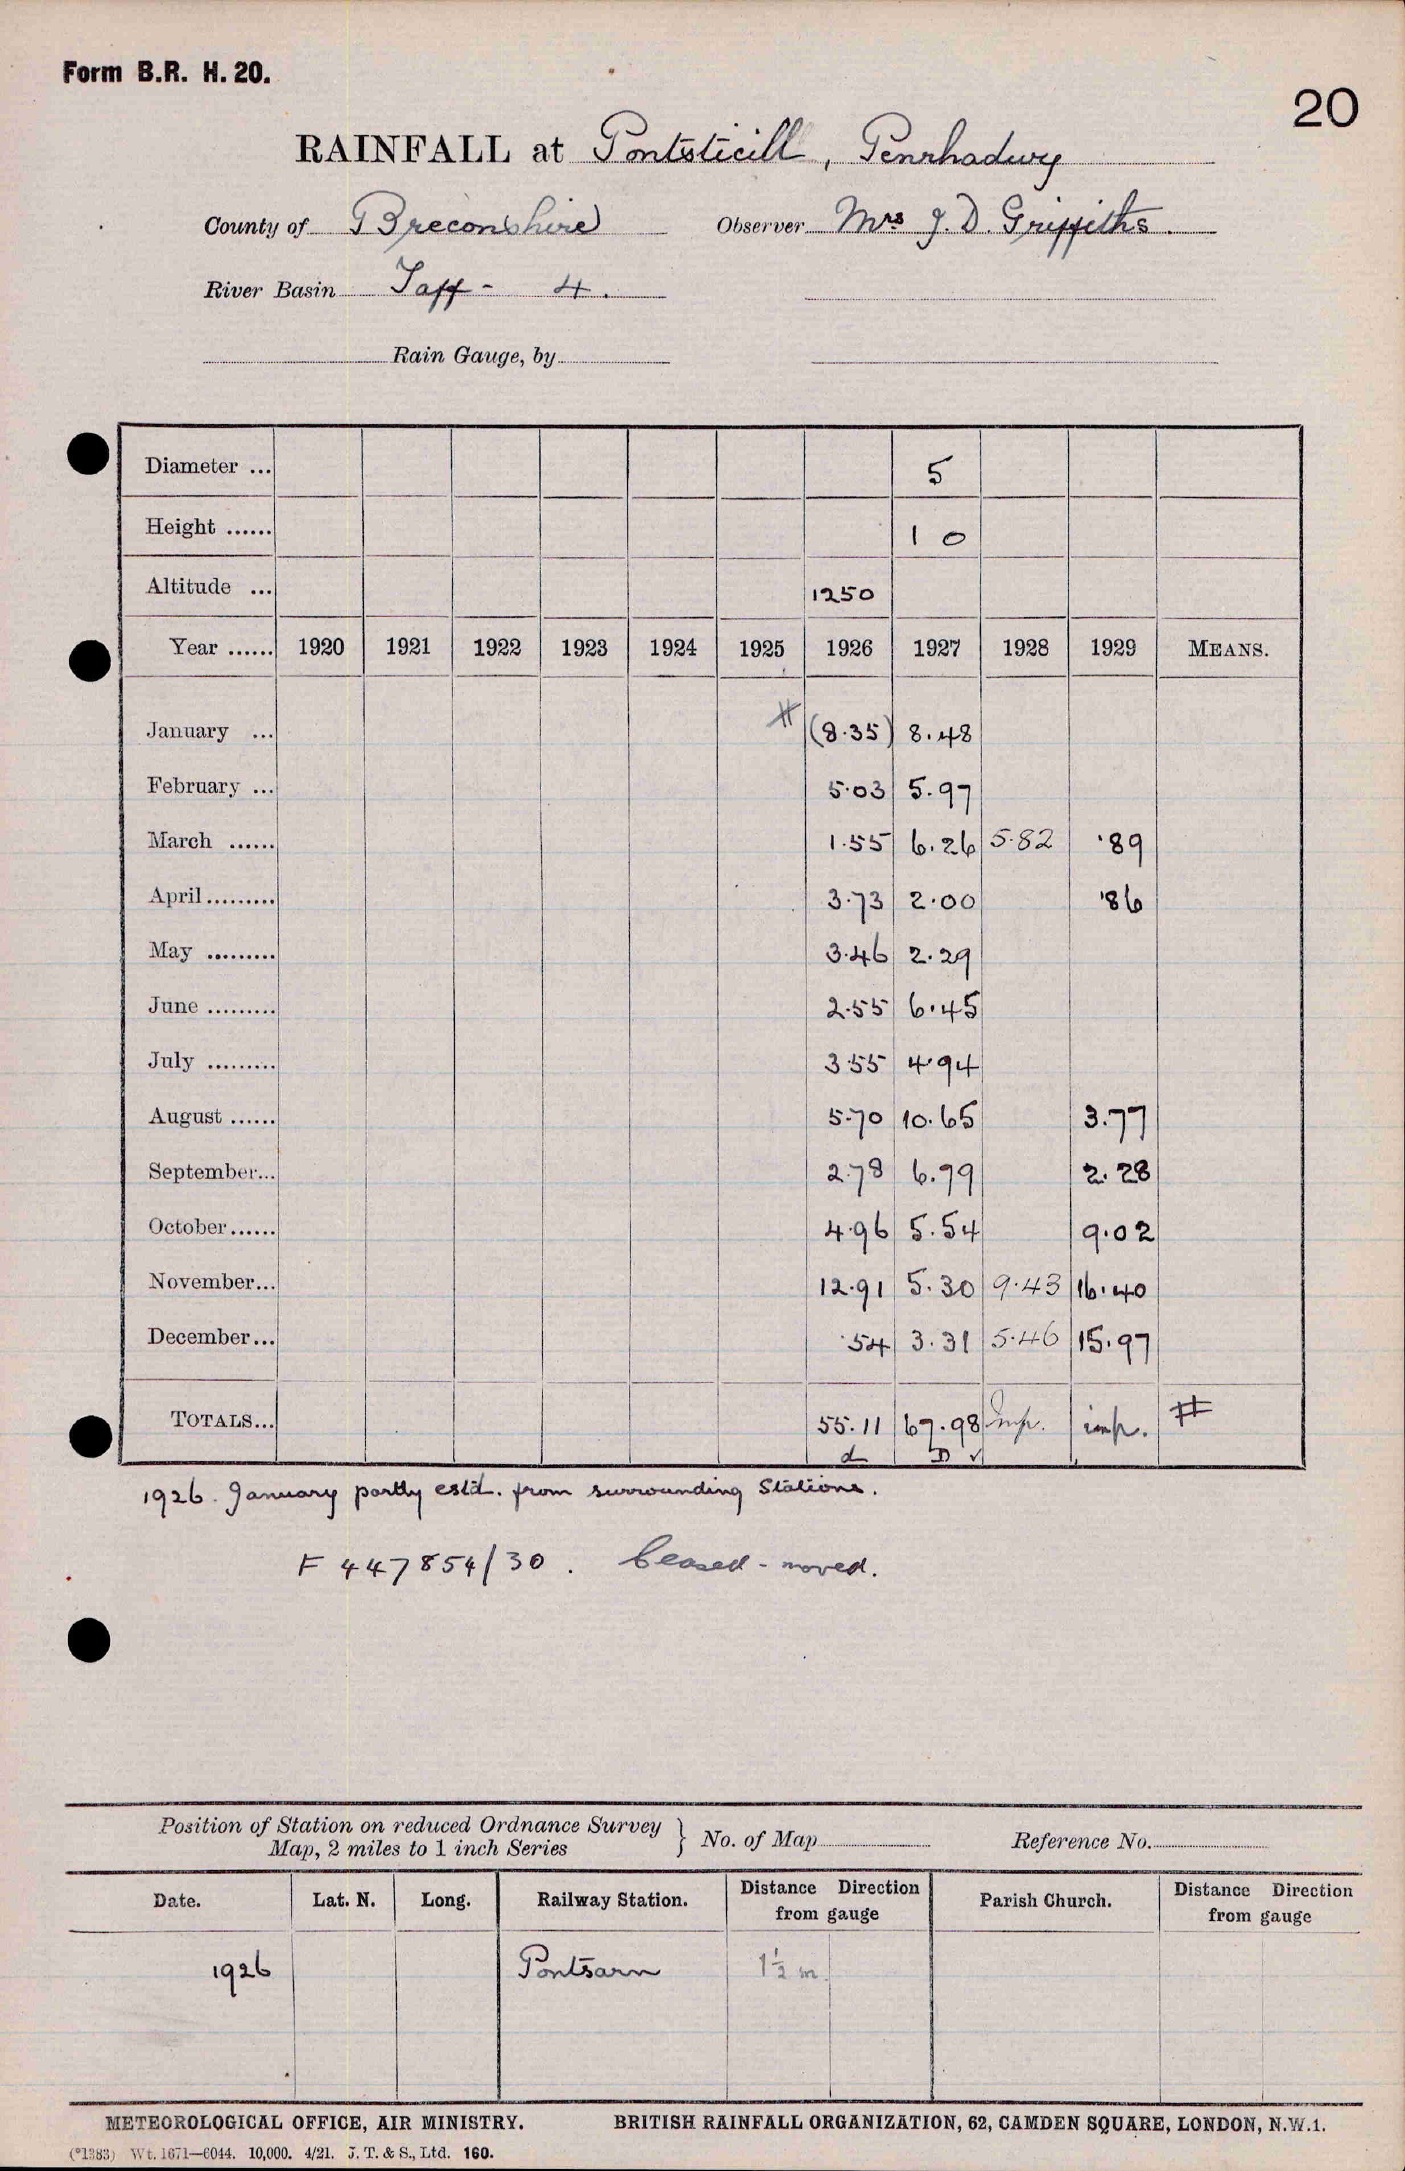 Form B.R. H. 20.
20
RAINFALL at Pontsticill, Penrhadwy
County of Breconshire Observer Mrs J. D. Griffiths.
River Basin Taff - 4.
Rain Gauge, by
Diameter ... 5
Height ...... 1 0
Altitude ... 1250
Year ...... 1920 1921 1922 1923 1924 1925 1926 1927 1928 1929 MEANS.
January ... # (8.35) 8.48
February ... 5.03 5.97
March ...... 1.55 6.26 5.82 .89
April ......... 3.73 2.00 .86
May ......... 3.46 2.29
June ......... 2.55 6.45
July ......... 3.55 4.94
August ...... 5.70 10.65 3.77
September... 2.78 6.79 2.28
October ...... 4.96 5.54 9.02
November... 12.91 5.30 9.43 16.40
December... .54 3.31 5.46 15.97
TOTALS... 55.11 67.98 Imp. imp. #
d D ✓
1926. January partly estd. from surrounding Stations.
F 447854/30. Ceased - moved.
Position of Station on reduced Ordnance Survey
Map, 2 miles to 1 inch Series } No. of Map Reference No.
Date. Lat. N. Long. Railway Station. Distance Direction from gauge Parish Church. Distance Direction from gauge
1926 Pontsarn 1½ m.
METEOROLOGICAL OFFICE, AIR MINISTRY. BRITISH RAINFALL ORGANIZATION, 62, CAMDEN SQUARE, LONDON, N.W.1.
(*1383) Wt. 1671—6044. 10,000. 4/21. J. T. & S., Ltd. 160.